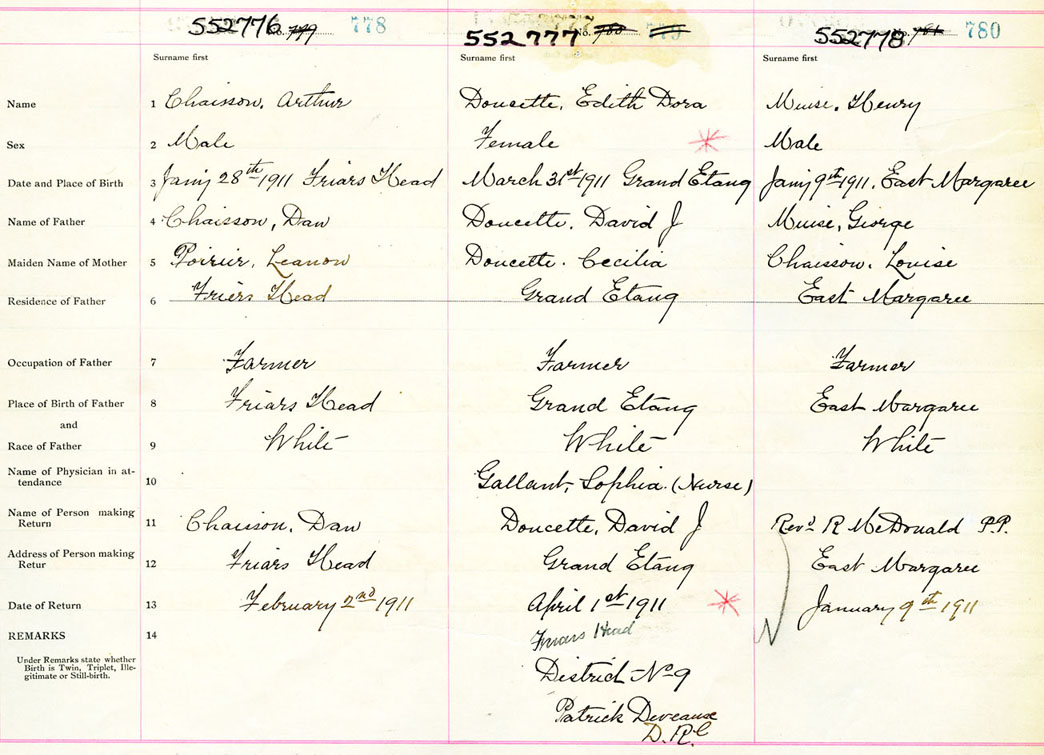 552776 No. 799 778 552777 No. 780 779 552778 No. 781 780
Surname first Surname first Surname first
Name 1 Chaisson, Arthur Doucette, Edith Dora Muise, Henry
Sex 2 Male Female Male
Date and Place of Birth 3 Jany 28th 1911 Friars Head March 31st 1911 Grand Etang Jany 9th 1911. East Margaree
Name of Father 4 Chaisson, Dan Doucette, David J Muise, George
Maiden Name of Mother 5 Poirier, Leanow Doucette. Cecilia Chaisson. Louise
Residence of Father 6 Friers Head Grand Etang East Margaree
Occupation of Father 7 Farmer Farmer Farmer
Place of Birth of Father 8 Friars Head Grand Etang East Margaree
and
Race of Father 9 White White White
Name of Physician in at-
tendance 10 Gallant, Sophia. (Nurse)
Name of Person making
Return 11 Chaisson, Dan Doucette, David J Revd R McDonald P.P.
Address of Person making
Retur 12 Friars Head Grand Etang East Margaree
Date of Return 13 February 2nd 1911 April 1st 1911 January 9th 1911
REMARKS 14 Friars Head
Under Remarks state whether
Birth is Twin, Triplet, Ille-
gitimate or Still-birth.
District No 9
Patrick Deveause
D.R.C